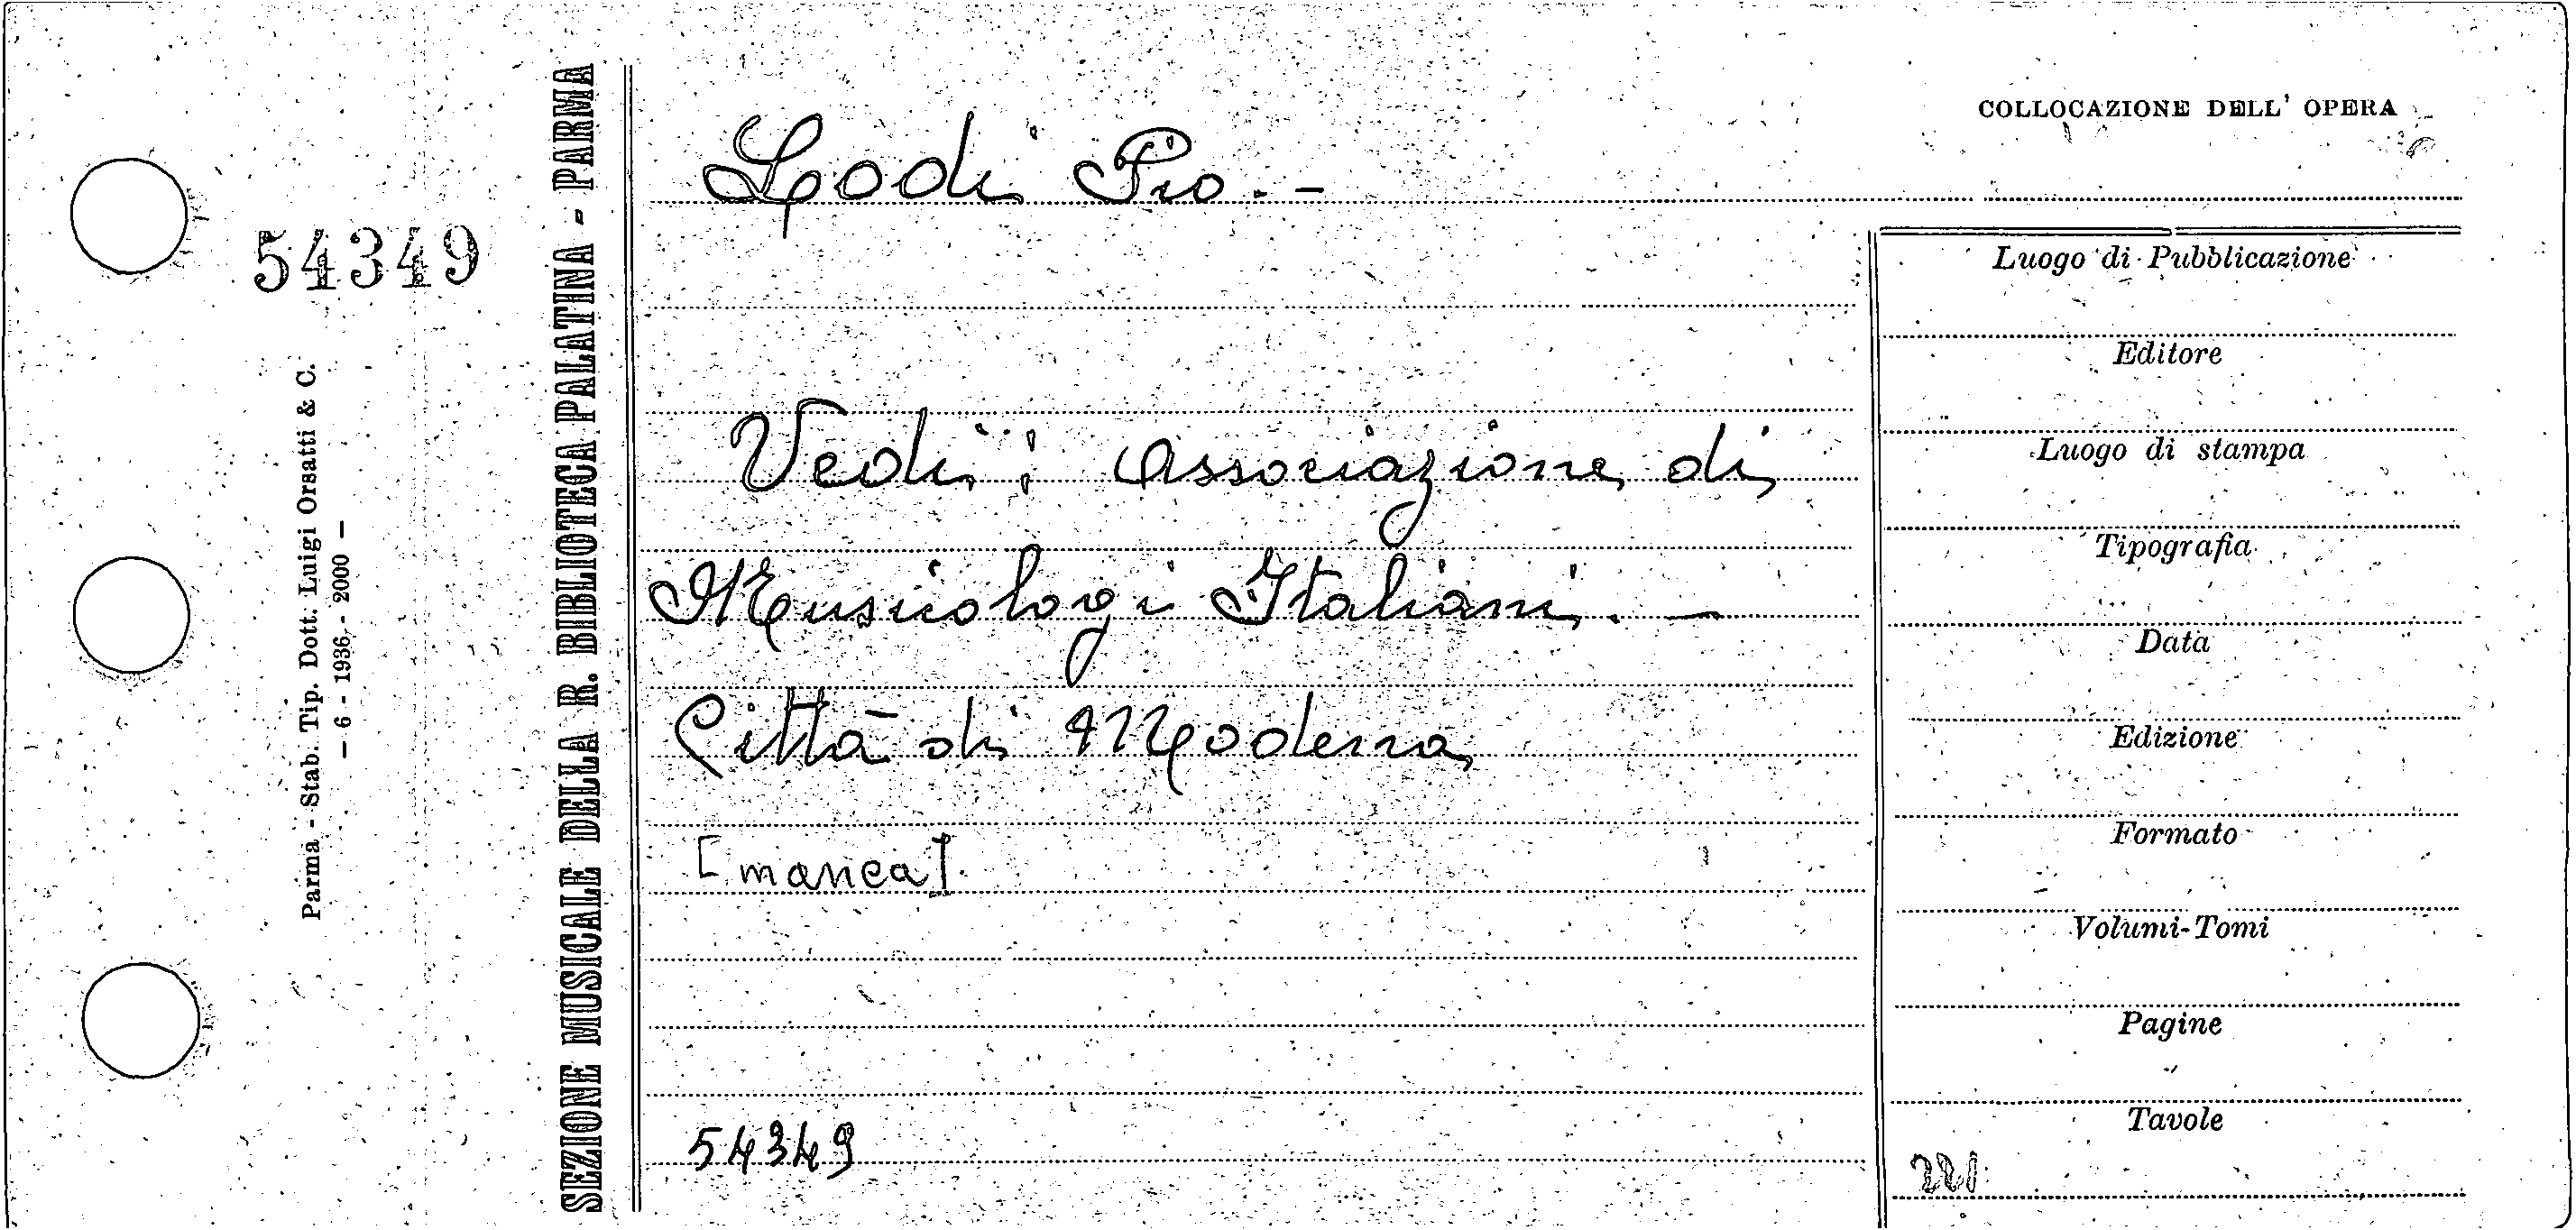 54349
Parma - Stab. Tip. Dott. Luigi Orsatti & C.
— 6 - 1936 - 2000 —
SEZIONE MUSICALE DELLA R. BIBLIOTECA PALATINA - PARMA
Lodi Pio. -
Vedi: Associazione di
Musicologi Italiani. —
Città di Modena
[manca]
54349
COLLOCAZIONE DELL' OPERA
Luogo di Pubblicazione
Editore
Luogo di stampa
Tipografia
Data
Edizione
Formato
Volumi-Tomi
Pagine
Tavole
221